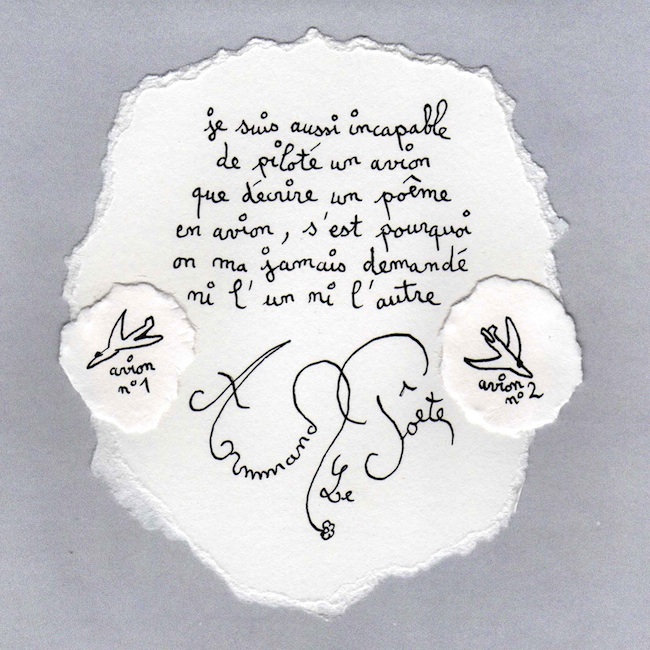 je suis aussi incapable
de piloté un avion
que décrire un poême
en avion, s'est pourquoi
on ma jamais demandé
ni l'un ni l'autre
avion
n°1
avion
n°2
Le Poête